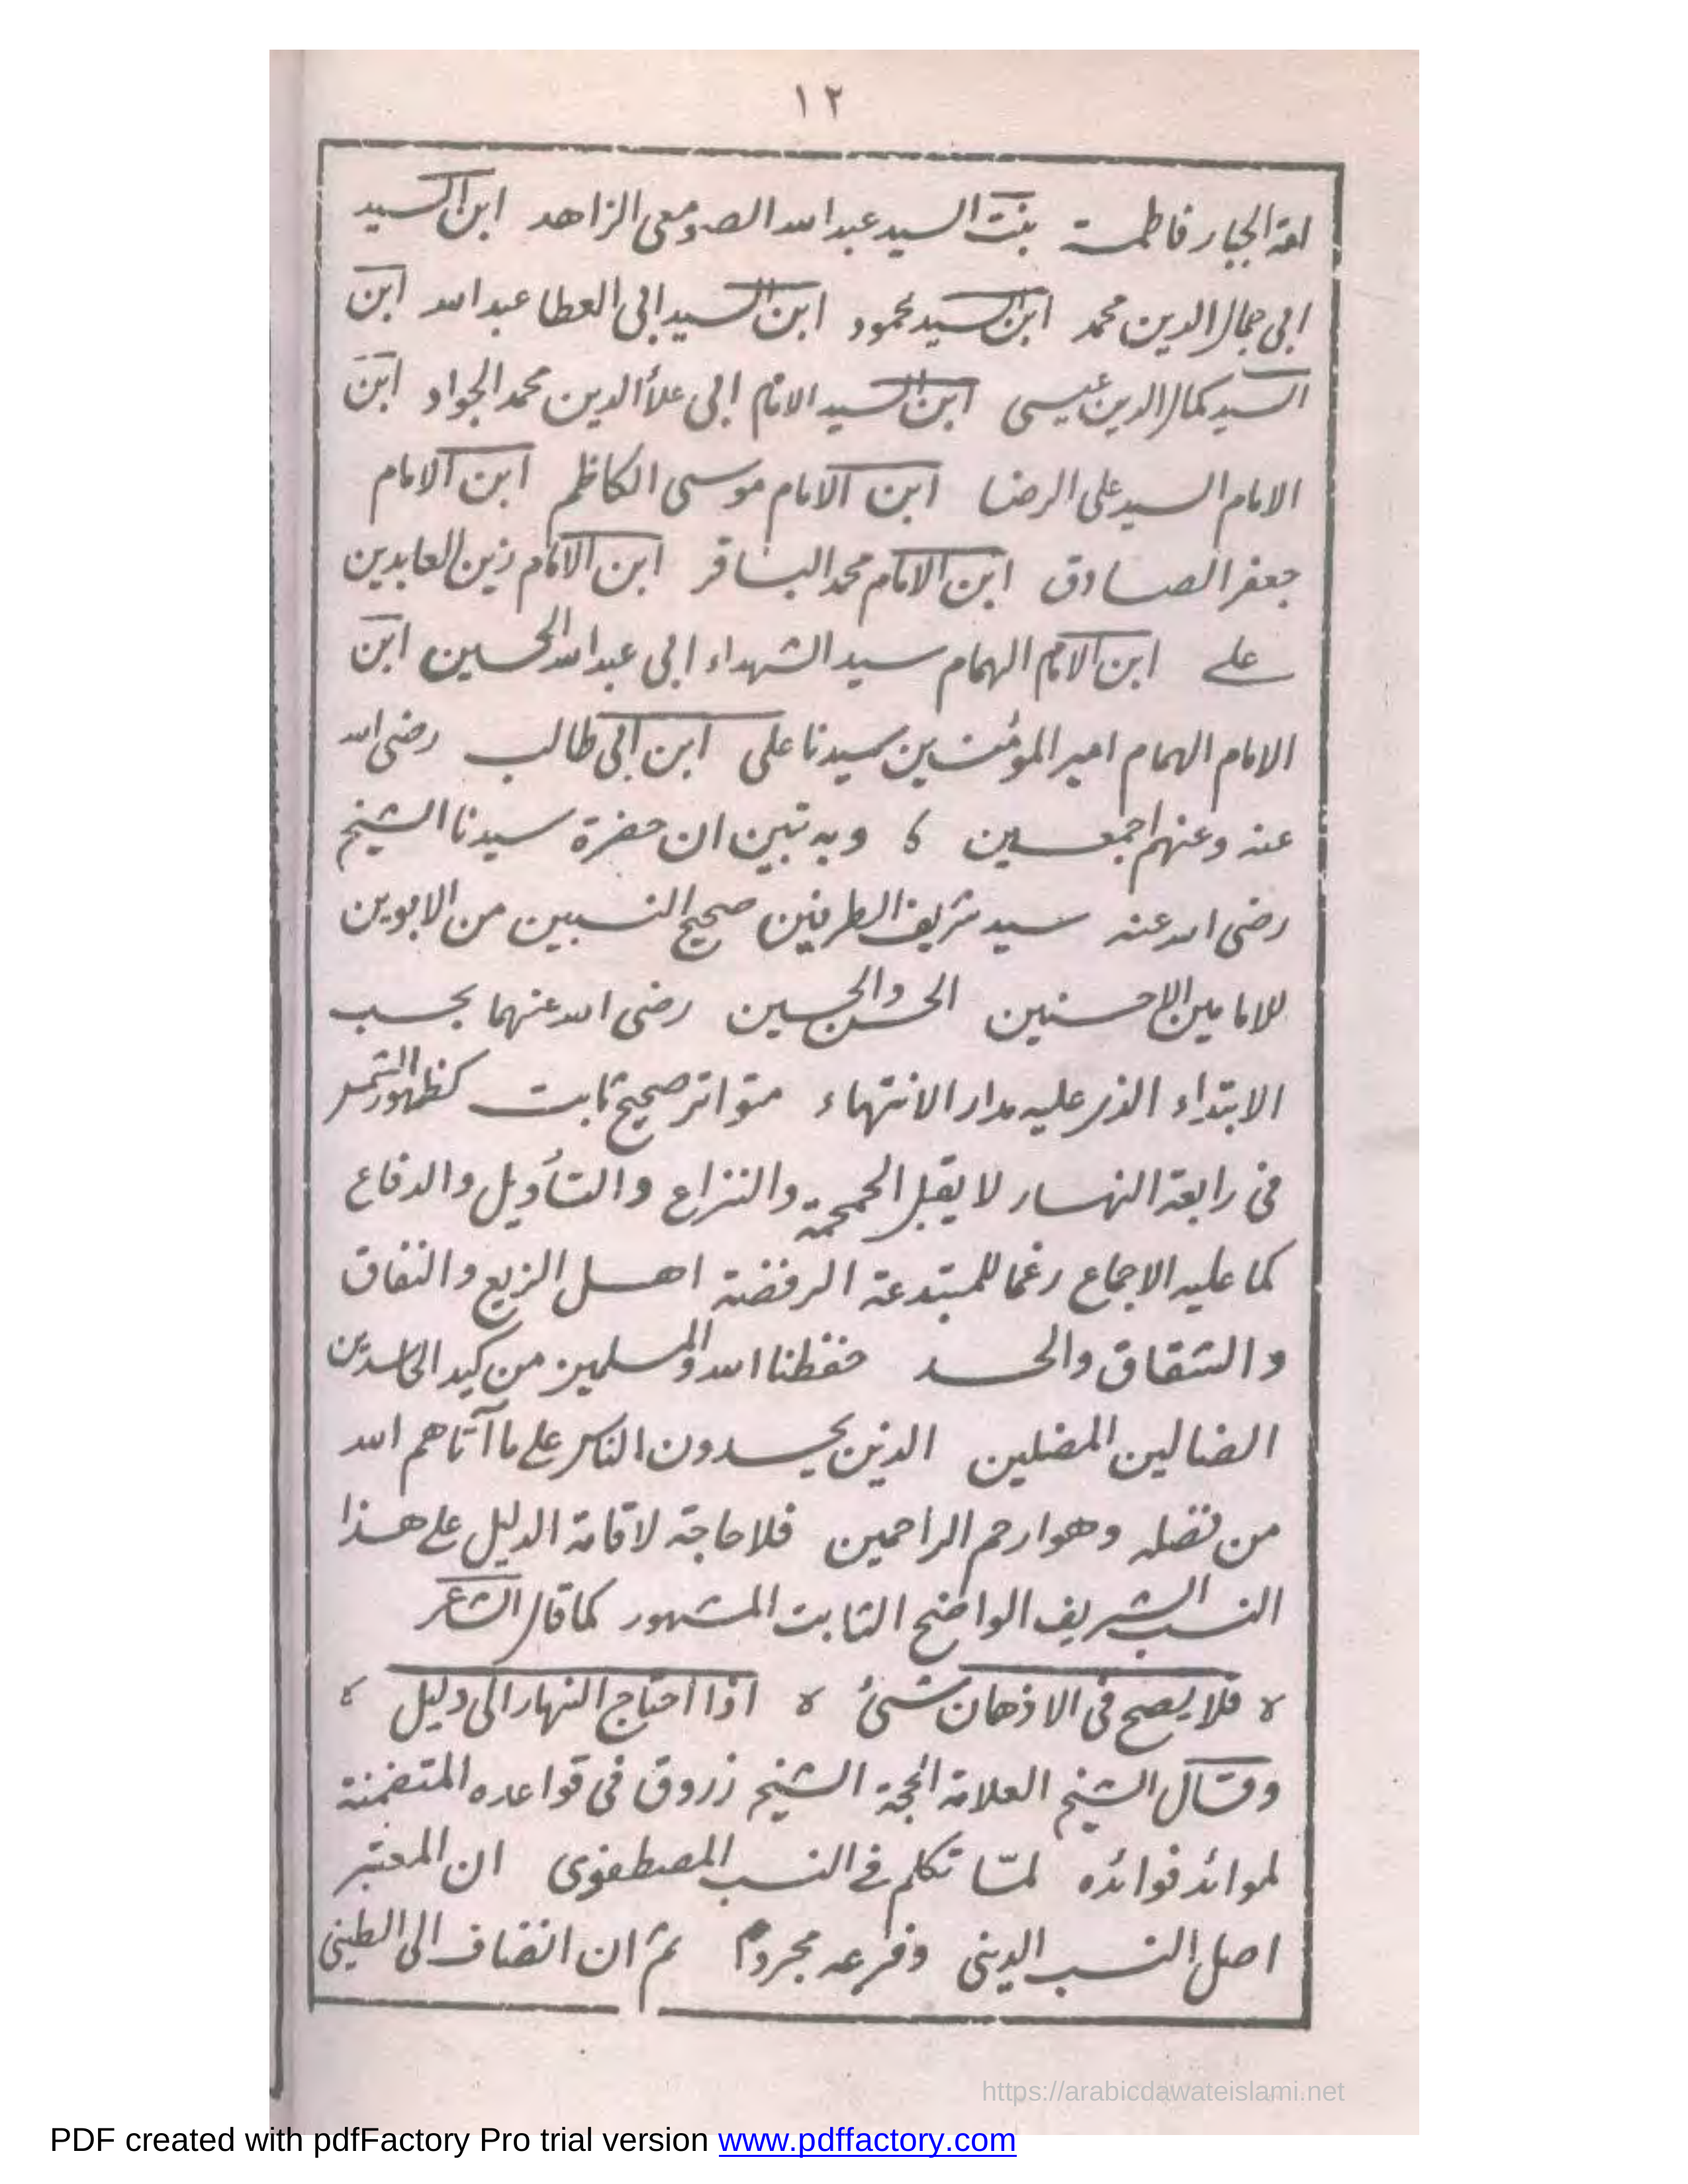 ١٢
امة الجبار فاطمة بنت السيد عبد الله الصومعى الزاهد ابن السيد
ابى جمال الدين محمد ابن السيد محمود ابن السيد ابى العطا عبد الله ابن
السيد كمال الدين عيسى ابن السيد الامام ابى علاءالدين محمد الجواد ابن
الامام السيد على الرضا ابن الامام موسى الكاظم ابن الامام
جعفر الصادق ابن الامام محمد الباقر ابن الامام زين العابدين
على ابن الامام الهمام سيد الشهداء ابى عبد الله الحسين ابن
الامام الهمام امير المؤمنين سيدنا على ابن ابى طالب رضى الله
عنه وعنهم اجمعين ، وبه تبين ان حضرة سيدنا الشيخ
رضى الله عنه سيد شريف الطرفين صحيح النسبين من الابوين
للامامين الاحسنين الحسن والحسين رضى الله عنهما بحسب
الابتداء الذى عليه مدار الانتهاء متواتر صحيح ثابت كظهور الشمس
فى رابعة النهار لا يقبل الحمحمة والنزاع والتأويل والدفاع
كما عليه الاجماع رغما للمبتدعة الرفضة اهل الزيع والنفاق
والشقاق والحسد حفظنا الله والمسلمين من كيد الحاسدين
الضالين المضلين الذين يحسدون الناس على ما آتاهم الله
من فضله وهو ارحم الراحمين فلا حاجة لاقامة الدليل على هذا
النسب الشريف الواضح الثابت المشهور كما قال الشاعر
فلا يصح فى الاذهان شىئ اذا احتاج النهار الى دليل
وقال الشيخ العلامة الحجة الشيخ زروق فى قواعده المتضمنة
لموائد فوائده لمّا تكلم فى النسب المصطفوى ان المعتبر
اصل النسب الدينى وفرعه مجردا ثم ان انضاف الى الطينى
https://arabicdawateislami.net
PDF created with pdfFactory Pro trial version www.pdffactory.com